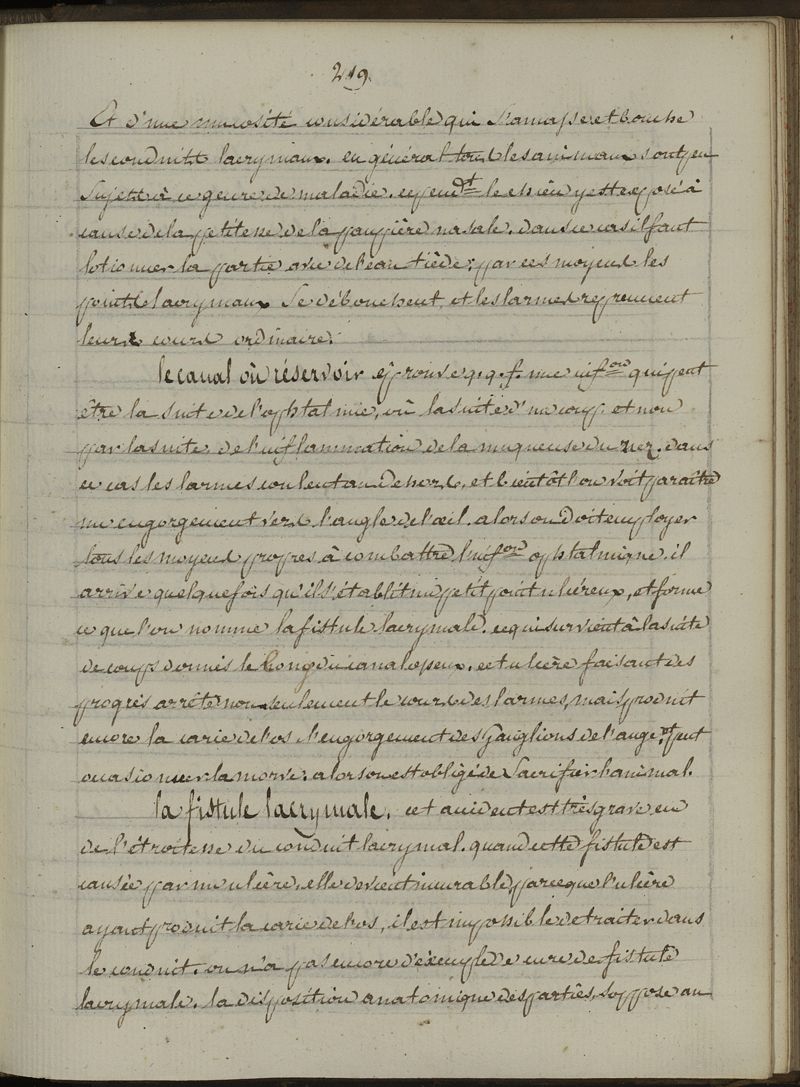 219.
Et d'une mucosité considérable qui s'amasse et bouche
les conduitt lacrymaux. en général tout les animaux sont peu
sujett à ce genre de maladie. cependt le chien y est exposé à
cause de la petitesse de la paupière nasale. dans ce cas il faut
lotionner la partie avec de l'eau tiède; par ces moyens les
points lacrymaux se débouchent, et les larmes reprennent
leurs cours ordinaire.
le canal où réservoir éprouve q.q.f. une infon qui peut
être la suite de l'ophtalmie, où la suite d'un coup et non
par la suite de l'inflammation de la muqueuse du nez. dans
ce cas les larmes coulent au dehors, et bientôt l'on voit paraître
un engorgement vers l'angle de l'œil. alors on doit employer
tous les moyens propres à combattre l'infon ophtalmique. il
arrive quelquefois qu'il s'établit un petit point ulcéreux, et forme
ce que l'on nomme la fistule lacrymale. ce qui survient à la suite
de coups donnés le long du canal osseux. cet ulcère faisant des
progrès arrête non seulement le cours des larmes, mais produit
encore la carie de l'os l'engorgement des Ganglions de l'auge, et peut
occasionner la morve. alors on est obligé de sacrifier l'animal.
la fistule lacrymale. cet accident est très grave en
de l'étroitesse du conduit lacrymal. quand cette fistule est
causée par un ulcère, elle devient incurable, parceque l'ulcère
ayant produit la carie de l'os, il est impossible de traiter dans
le conduit. on n'a pas encore d'exemple de cure de fistule
lacrymale. la disposition anatomique des parties, s'oppose au